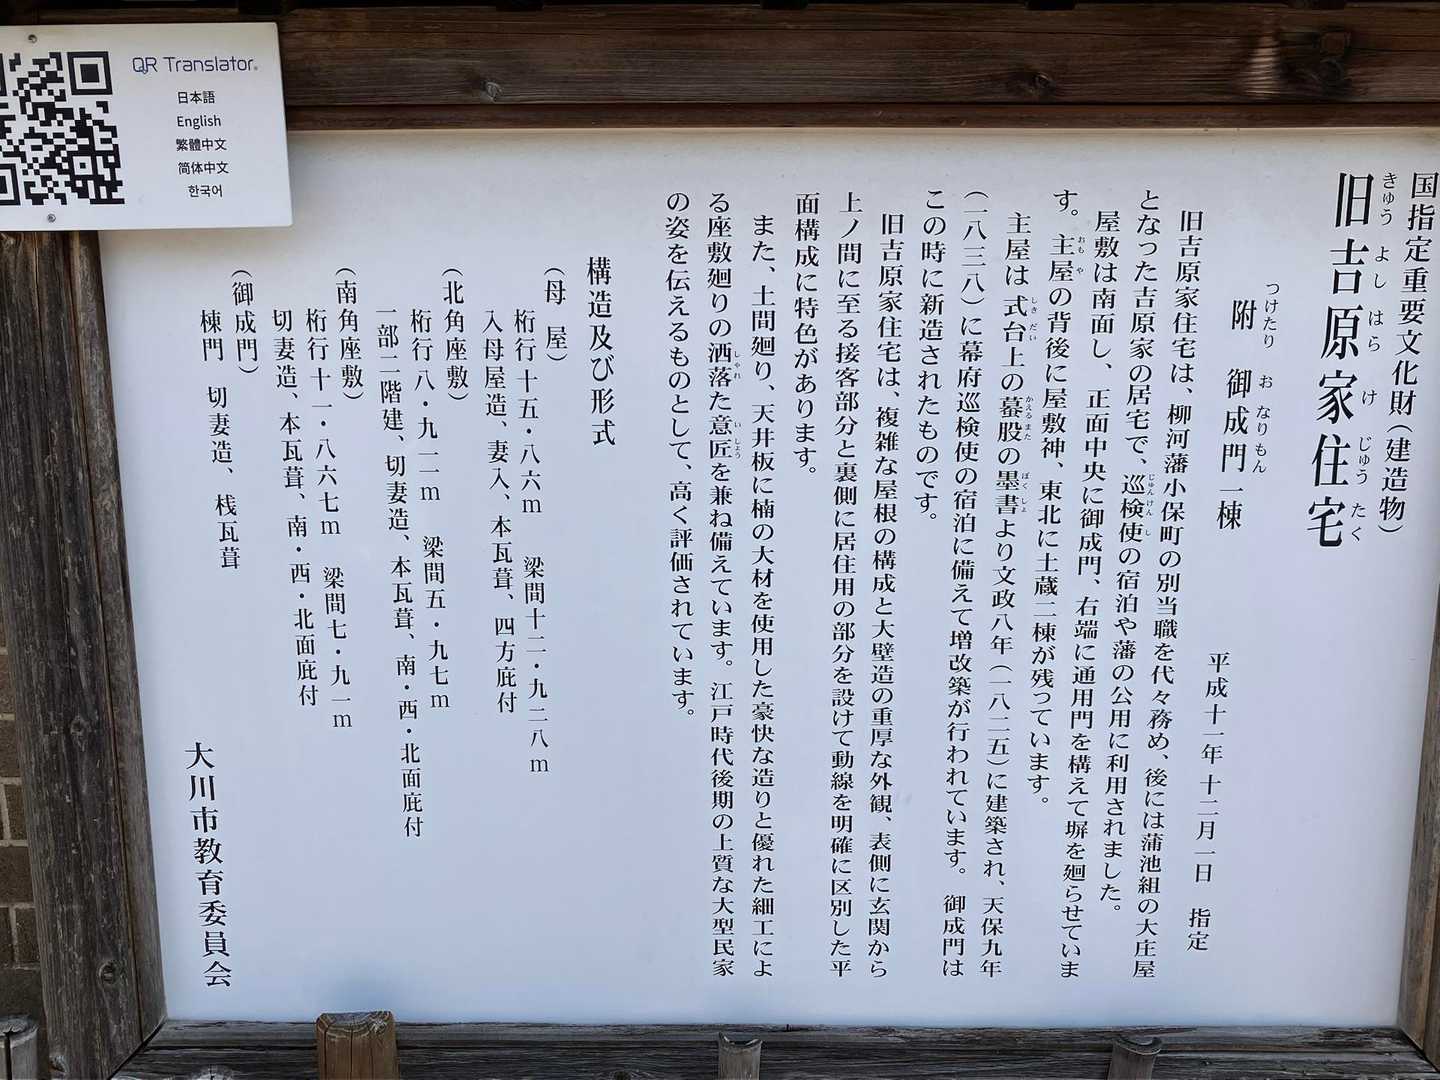 QR Translator
日本語
English
繁體中文
简体中文
한국어
国指定重要文化財（建造物）
きゅう よし はら け じゅう たく
旧吉原家住宅
つけたり お なりもん
附 御成門一棟
平成十一年十二月一日 指定
旧吉原家住宅は、柳河藩小保町の別当職を代々務め、後には蒲池組の大庄屋
となった吉原家の居宅で、巡検使の宿泊や藩の公用に利用されました。
じゅんけん し
屋敷は南面し、正面中央に御成門、右端に通用門を構えて塀を廻らせていま
す。主屋の背後に屋敷神、東北に土蔵二棟が残っています。
おも や
主屋は式台上の蟇股の墨書より文政八年（一八二五）に建築され、天保九年
しき だい かえるまた ぼく しょ
（一八三八）に幕府巡検使の宿泊に備えて増改築が行われています。御成門は
この時に新造されたものです。
旧吉原家住宅は、複雑な屋根の構成と大壁造の重厚な外観、表側に玄関から
上ノ間に至る接客部分と裏側に居住用の部分を設けて動線を明確に区別した平
面構成に特色があります。
また、土間廻り、天井板に楠の大材を使用した豪快な造りと優れた細工によ
る座敷廻りの洒落た意匠を兼ね備えています。江戸時代後期の上質な大型民家
しゃれ い しょう
の姿を伝えるものとして、高く評価されています。
構造及び形式
（母 屋）
桁行十五・八六m 梁間十二・九二八m
入母屋造、妻入、本瓦葺、四方庇付
（北角座敷）
桁行八・九一二m 梁間五・九七m
一部二階建、切妻造、本瓦葺、南・西・北面庇付
（南角座敷）
桁行十一・八六七m 梁間七・九一m
切妻造、本瓦葺、南・西・北面庇付
（御成門）
棟門 切妻造、桟瓦葺
大川市教育委員会